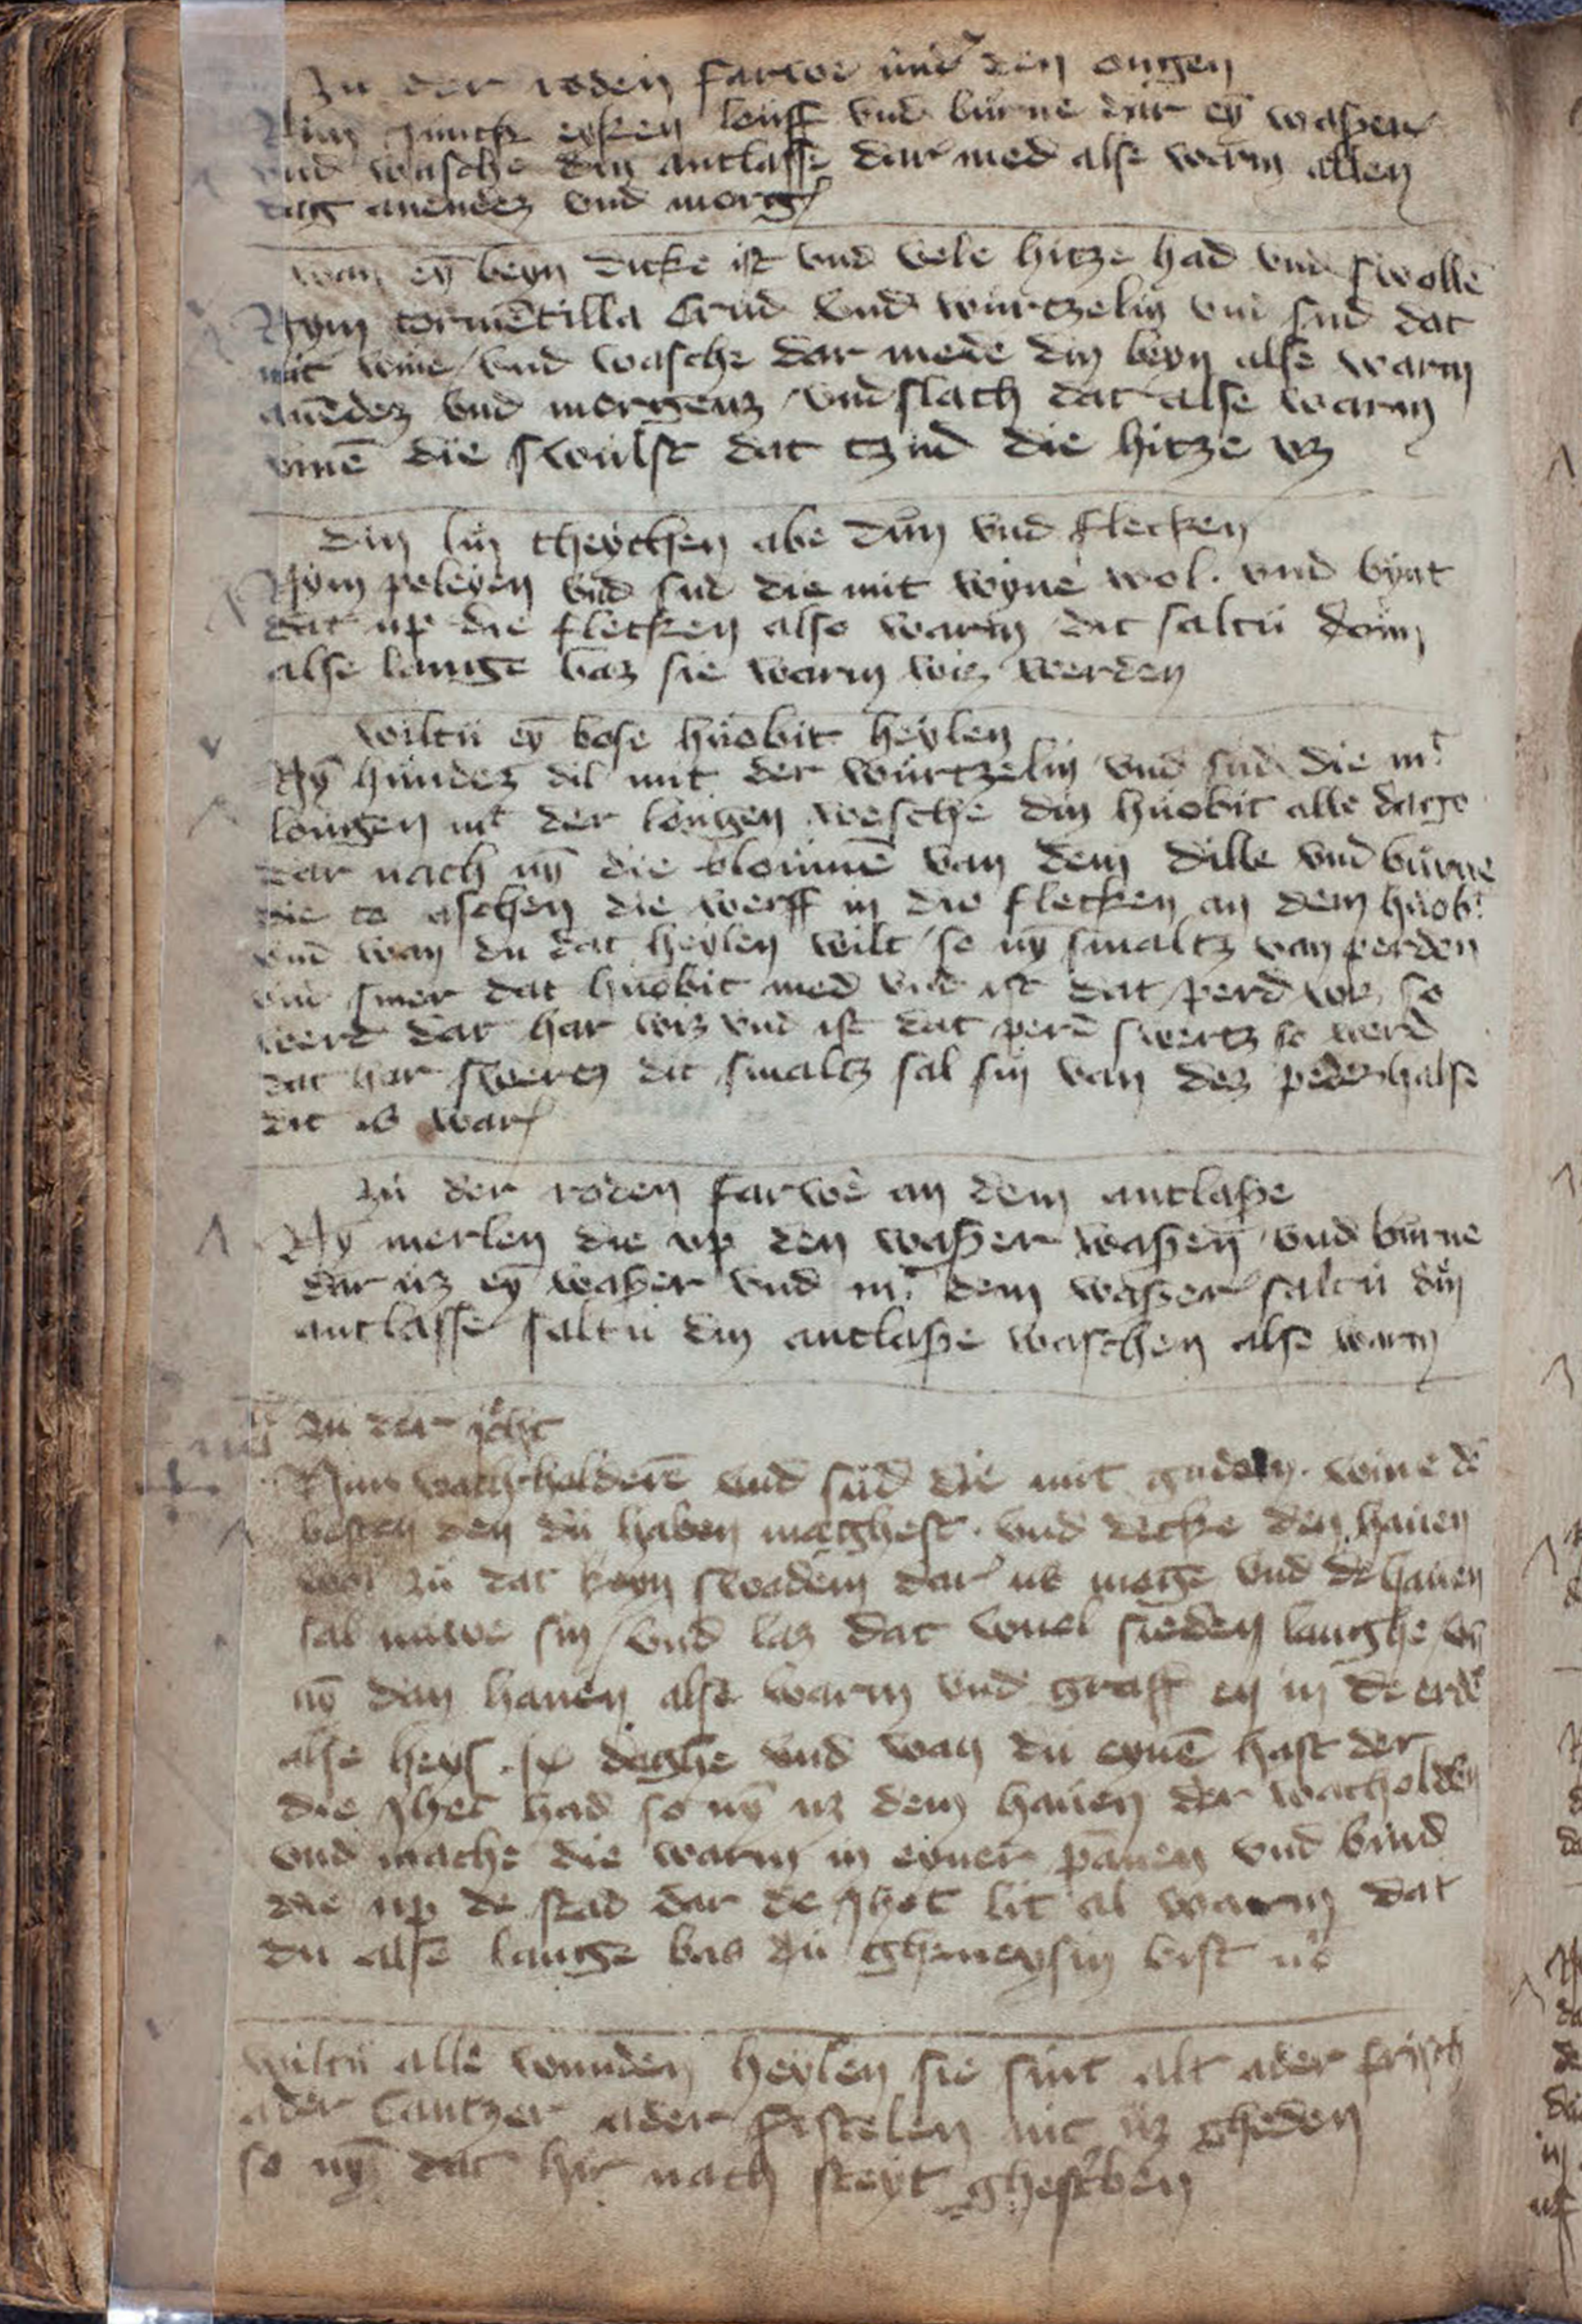 Zu der roden farwe und' den ougen
Nim junck eyken louff vnd burne dar ey̅ waßer
vnd wasche din antlasse dar med alse warm allen
dag auendez vnd morg
wan ey̅ beyn dicke ist vnd vele hitze had vnd swolle̅
Nym torme̅tilla crud vnd wurtzelin vnd sud dat
mit wine / vnd wasche dar mede din beyn alse warm
aue̅dez vnd morgenz / vnd slach dat alse warm
vme̅ die swulst dat tzud die hitze vz
lin theychen abe dun vnd flecken
Nym poleyen vnd sud die mit wyne wol . vnd bynt
dat up die flecken also warm dit saltu doin
alse lange baz sie warm wiz werden
Wiltu ey̅ bose huobit heylen
Ny̅ hundez dil mit der wurtzelin vnd sud die mt
lougen mt der lougen wesche din huobit alle dage
dar nach ny̅ die bloume̅ van dem dille vnd burne
die to aschen die werff in die flecken an dem huobt
vnd wan du dat heylen wilt / so ny̅ smaltz van perden
vnd smer dat huobit med vnd ist dat perd wiz so
werd dar har wiz vnd ist dat perd swertz so werd
dat har swertz dit smaltz sal sin van dez pederhalse
dit is war
Zu der roden farwe an dem antlaße
Ny̅ merlen die up den waßer waßen vnd burne
dar uz ey̅ waßer vnd mt dem waßer saltu din
antlasse saltu din antlaße waschen alse warm
Zu der jcht
Nim wachholdere̅ vnd sud die mit guden . wine de̅
besten den du haben maghest . vnd decke den hauen
wol zu dat keyn swadem dar us moge vnd de hauen
sal nuwe sin / vnd laz dat wuel sieden langhe / vn̅
ny̅ dan hauen alse warm vnd graff en in de erde
alse heys . ix daghe vnd wan du eyne̅ hast der
die jhct had so ny̅ uz dem hauen der wacholden
vnd mache die warm in eyner pannen vnd bind
die up de stad dar de jhct lit al warm dat
du alse lange bas du gheneysin bist us
Wiltu alle wunden heylen sie sint alt ader frisch
ader cantzer ader fistelen nit uz gheden
so ny̅ dat hir nach steyt ghesc'ben